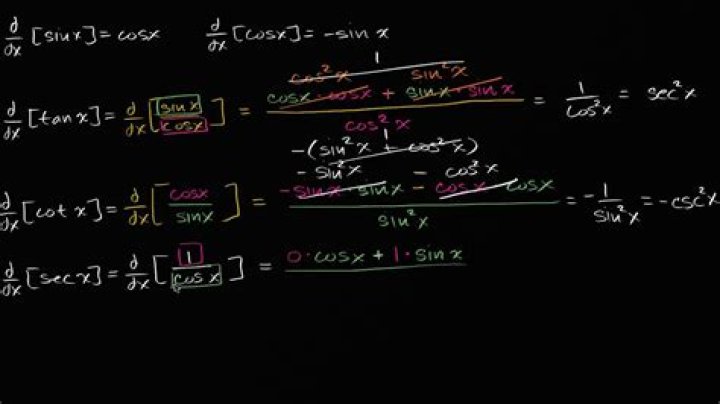 d/dx [sinx] = cosx    d/dx [cosx] = -sinx
1
cos²x    sin²x
d/dx [tanx] = d/dx [sinx/cosx] = (cosx·cosx + sinx·sinx)/cos²x = 1/cos²x = sec²x
1
-(sin²x + cos²x)
-sin²x - cos²x
d/dx [cotx] = d/dx [cosx/sinx] = (-sinx·sinx - cosx·cosx)/sin²x = -1/sin²x = -csc²x
d/dx [secx] = d/dx [1/cosx] = 0·cosx + 1·sinx